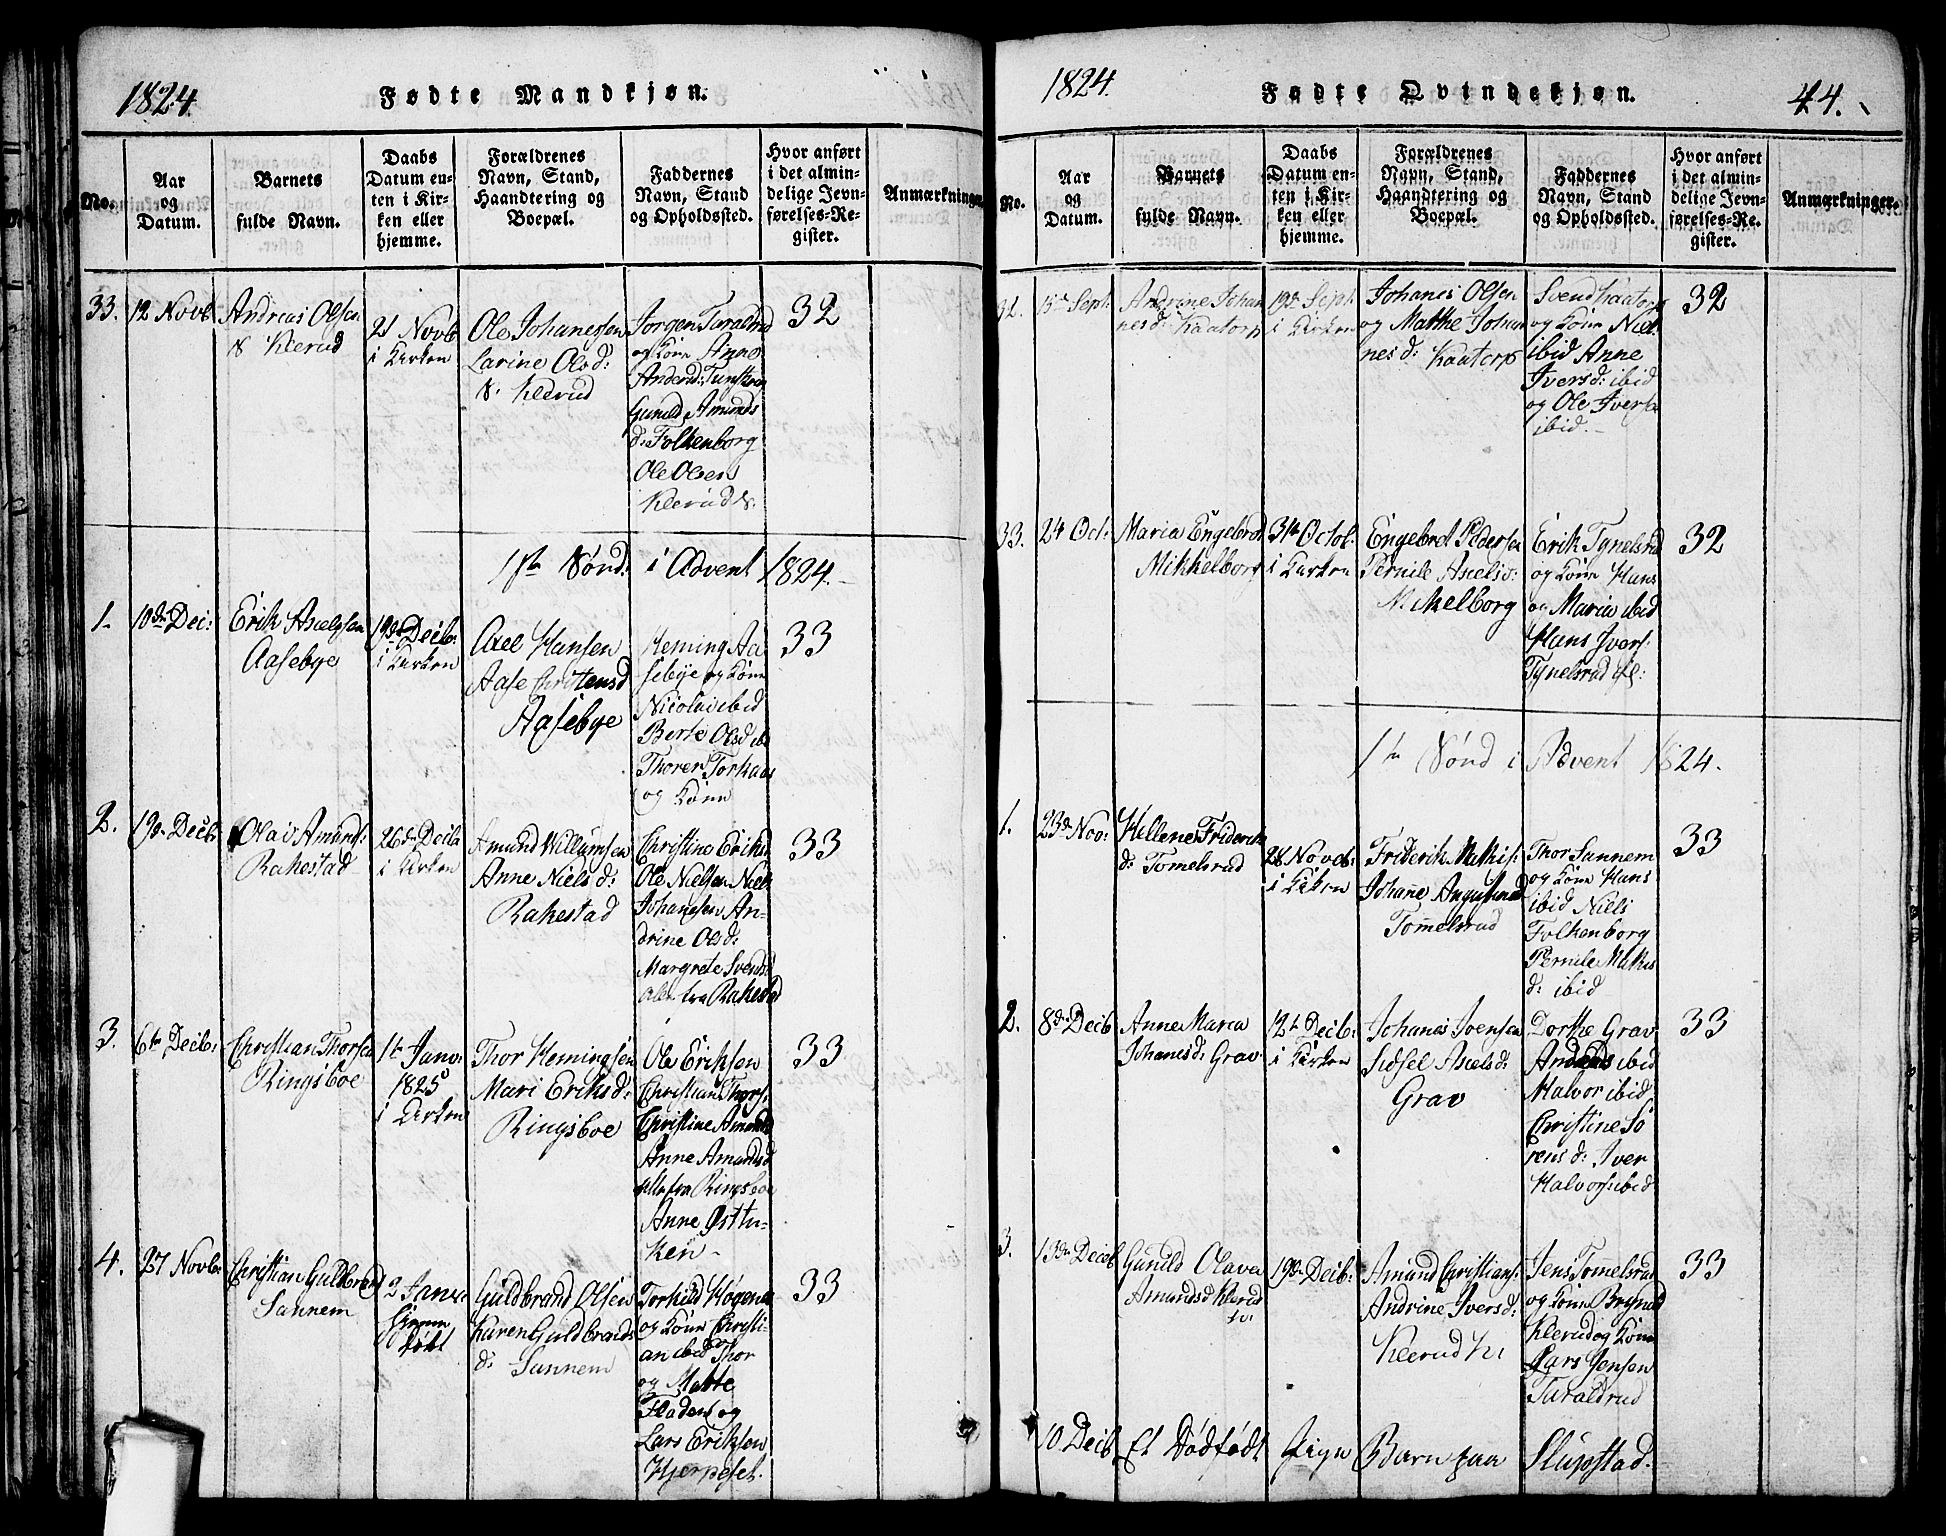 1824
Fødte Mandkjøn.
No.
Aar
og
Datum.
Barnets
fulde Navn.
Daabs
Datum en-
ten i Kir-
ken eller
hjemme.
Forældrenes
Navn, Stand,
Haandtering og
Boepæl.
Faddernes
Navn, Stand
og Opholdssted.
Hvor anført
i det almin-
delige Jevn-
førelses-Re-
gister.
Anmærkninger
33.
12 Novb
Andreas Olsen
Klerud
21 Novb
i Kirken
Ole Johanesen
Larine Olsd:
Klerud
Jorgen Taraldrud
og Kone Anne
Andersd:
Gunild Amunds
d: Folkenborg
Ole Olsen
Klerud
32
1ste Sønd: i Advent 1824.
1.
10de Dec:
Erik Axelsen
Aasebye
19de Decb:
i Kirken
Axel Hansen
Aase Christensd
Aasebye
Heming Aa
sebye og Kone
Nicolai ibid
Berte Olsd ibi
Thorer Torkaas
og Kone
33
2.
19de Decb:
Olai Amunds:
Rakestad
26de Decb
i Kirken
Amund Willumsen
Anne Niels d:
Rakestad
Christine Eriksd
Ole Nielsen Niels
Johanesen An-
drine Olsd:
Margrete Svends
alle fra Rakestad
33
3.
6te Decb:
Christian Thorsen
Ringsboe
1te Janv:
1825
i Kirken
Thor Hemingsen
Mari Eriksd:
Ringsboe
Ole Eriksen
Christian Thors:
Christine Amunds
Anne Amundsd
alle fra Ringsboe
Anne Østtu-
ken
33
4.
27 Novb:
Christian Guldbrand
Sannem
2 Janv:
hjemme
døbt
Guldbrand Olsen
Karen Guldbrands
d: Sannem
Torkild Høgenes
og Kone Christi-
an ibid Thor
og Matte
Fladen og
Lars Eriksen
Hjerpeset.
33
1824.
Fødte Qvindekjøn.
44.
No.
Aar
og
Datum.
Barnets
fulde Navn.
Daabs
Datum en-
ten i Kir-
ken eller
hjemme.
Forældrenes
Navn, Stand,
Haandtering og
Boepæl.
Faddernes
Navn, Stand
og Opholdssted.
Hvor anført
i det almin-
delige Jevn-
førelses-Re-
gister.
Anmærkninger.
32.
15de Sept:
Andrine Johan
nesd: Kaatorp
19de Sept:
i Kirken
Johanes Olsen
og Mathe Johan
nes d: Kaatorp
Svend Kaatorp
og Kone Niels
ibid Anne
Iversd: ibid
og Ole Iversen
ibid.
32
33.
24 Oct:
Maria Engebret
Mikkelborg
31te Octob:
i Kirken
Engebret Pedersen
Pernile Axelsd:
Mikelborg
Erik Tynelsrud
og Kone Hans
og Maria ibid
Hans Ivers:
Tynelsrud
32
1ste Sønd i Advent 1824.
1.
23de Nov:
Hellene Friderik
d: Tomelsrud
28 Novb:
i Kirken
Friderik Mathis:
Johane Augustinusd
Tommelsrud
Thor Sannem
og Kone Hans
ibid Niels
Folkenborg
Pernile Mathis
d: ibid
33
2.
8de Decb
Anne Maria
Johanesd: Grav
12te Decb:
i Kirken
Johanes Iversen
Sidsel Axelsd:
Grav
Dorthe Grav
Andreas ibid
Halvor ibid
Christine Sö
rens d: Iver
Halvors: ibid
33
3.
13de Decb
Gunild Olava
Amundsd Klerud
19de Decb:
Amund Christians:
Andrine Iversd:
Klerud
Jens Tomelsrud
og Kone Brynild
Klerud og Kone
Lars Jensen
Taraldrud
33
10 Decb
Et Dødfødt Pige Barn paa Slupstad.